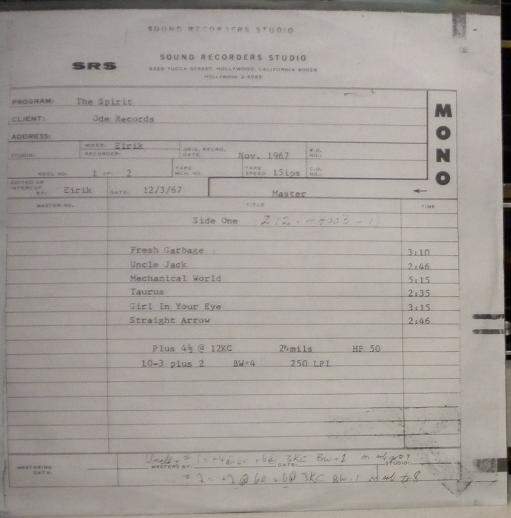 SOUND RECORDERS STUDIO
SOUND RECORDERS STUDIO
SRS
6226 YUCCA STREET, HOLLYWOOD, CALIFORNIA 90028
HOLLYWOOD
PROGRAM: The Spirit
CLIENT: Ode Records
ADDRESS:
MONO
MIXER: Eirik
RECORDER:
ORIG. RECRD. DATE: Nov. 1967
W.O. NO.:
REEL NO. 1 OF: 2
TAPE MCH. NO.
TAPE SPEED: 15ips
EDITED OR INTERCUT BY: Eirik DATE: 12/3/67
Master
MASTER NO. TITLE TIME
Side One
Fresh Garbage 3:10
Uncle Jack 2:46
Mechanical World 5:15
Taurus 2:35
Girl In Your Eye 3:15
Straight Arrow 2:46
Plus 4½ @ 12KC 2½mils HF 50
10-3 plus 2 BW-4 250 LPI
MASTERING DATA:
MASTERED BY: DATE: STUDIO: